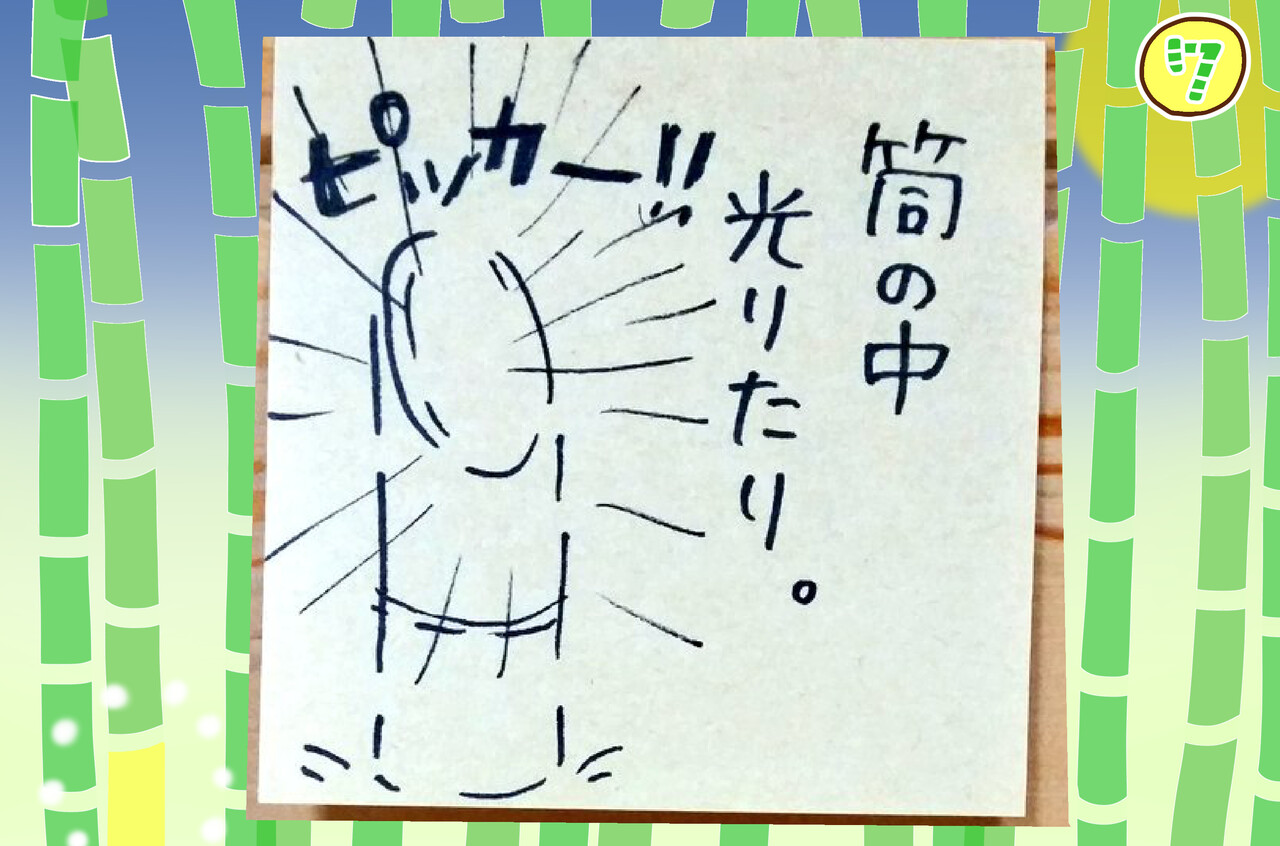 筒の中
光りたり。
ピッカーッ!!
ワ